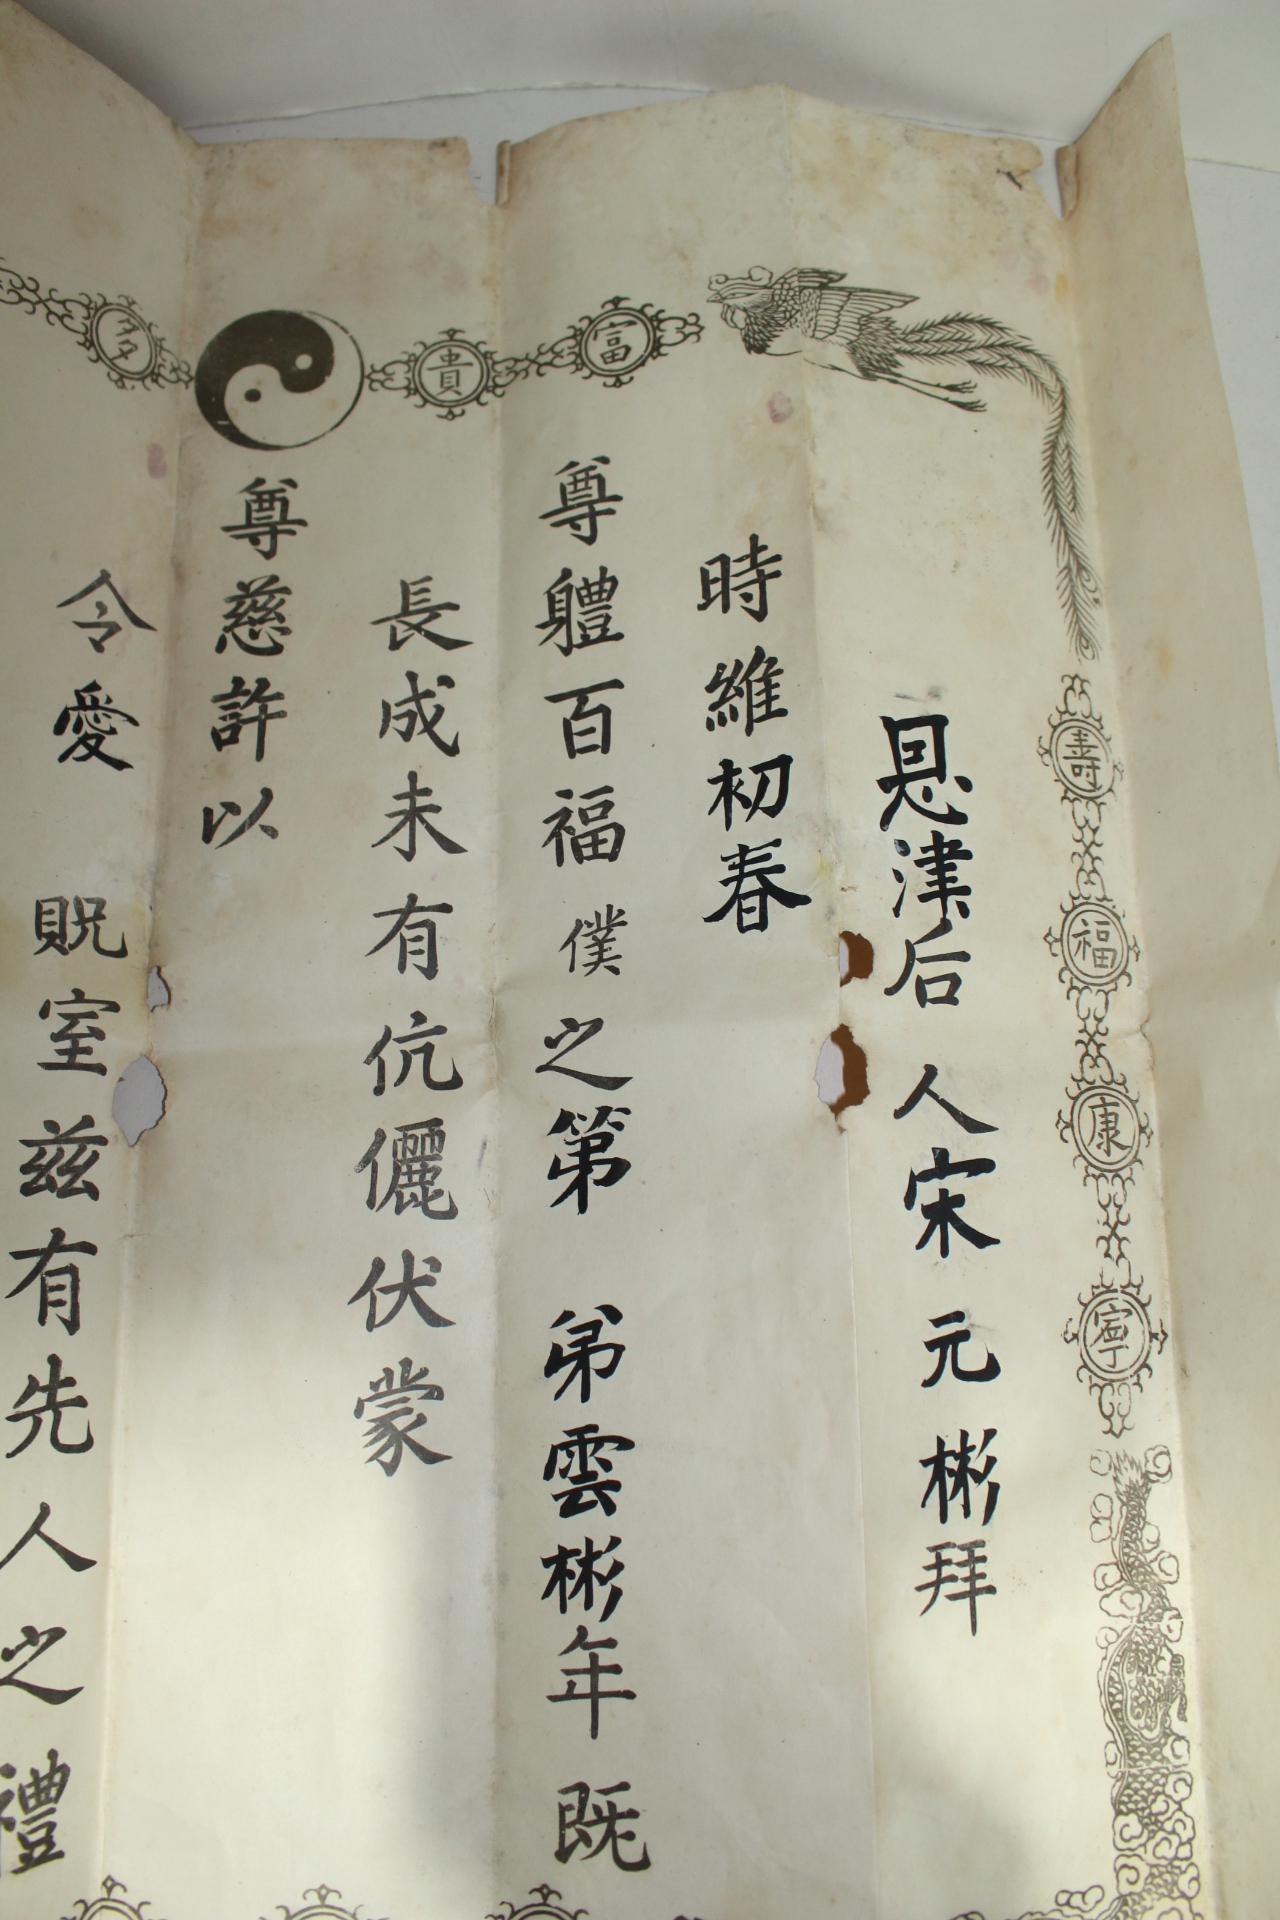 富
貴
多
壽
福
康
寧
恩津后人宋元彬拜
時維初春
尊軆百福僕之第 弟雲彬年既
長成未有伉儷伏蒙
尊慈許以
令愛 貺室玆有先人之禮